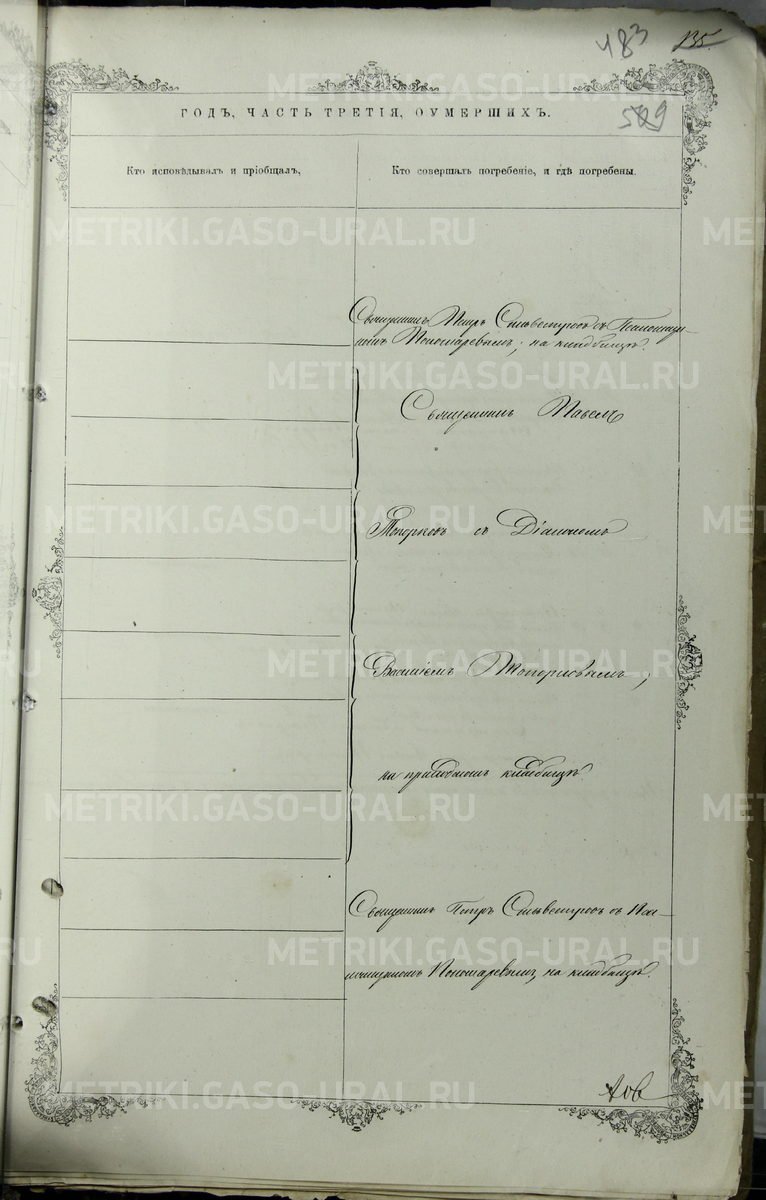 483 135
509
ГОДЪ, ЧАСТЬ ТРЕТІЯ, ОУМЕРШИХЪ.
Кто исповѣдывалъ и пріобщалъ,
Кто совершалъ погребеніе, и гдѣ погребены.
Священникъ Петръ Сильвестровъ съ Псаломщи-
комъ Пономаревымъ, на кладбищѣ.
Священникъ Павелъ
Топорковъ съ Діакономъ
Василіемъ Топорковымъ,
на приходскомъ кладбищѣ
Священникъ Петръ Сильвестровъ съ Пса-
ломщикомъ Пономаревымъ, на кладбищѣ.
METRIKI.GASO-URAL.RU